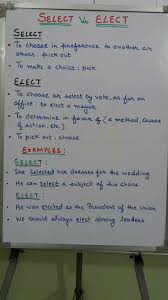 SELECT Vs ELECT
SELECT
• To choose in preference to another or
others; pick out
• To make a choice; pick
ELECT
• To choose or select by vote, as for an
office: to elect a mayor.
• To determine in favor of (a method, course
of action, etc.)
• To pick out, choose
EXAMPLES:
SELECT:
• She Selected her dresses for the wedding.
• He can Select a subject of his choice
ELECT:
• He was elected as the President of the Union
• We should always elect strong leaders